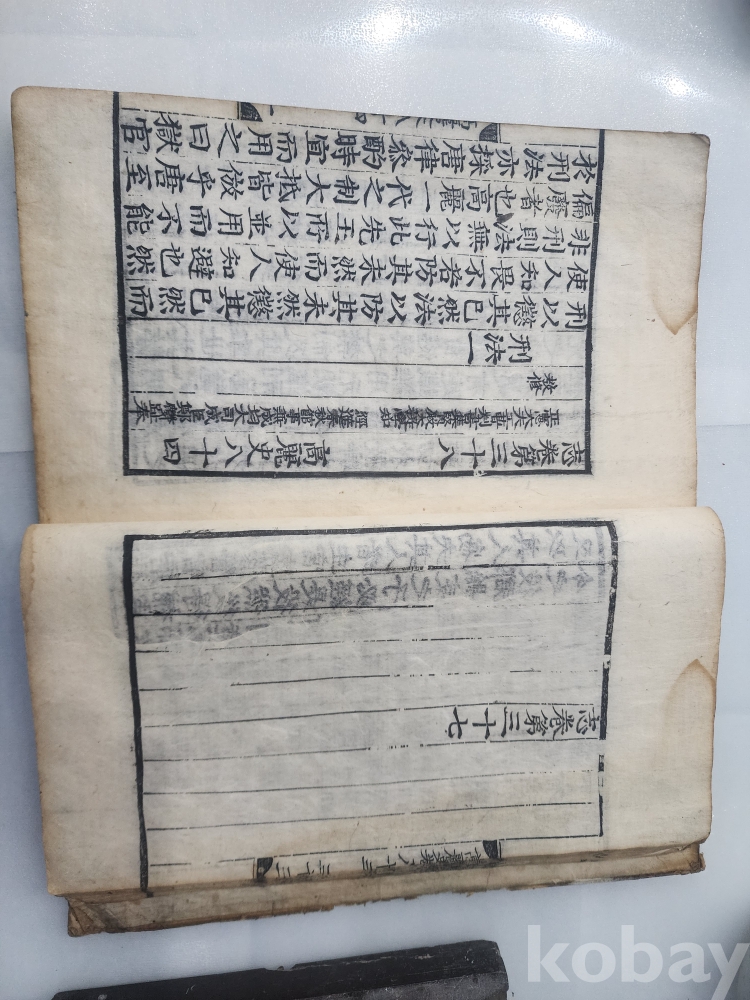 志卷第三十七
高麗史八十三
志卷第三十八 高麗史八十四
正憲大夫工曹判書集賢殿大提學知
經筵春秋館事兼成均大司成臣鄭麟趾奉
教修
刑法一
刑以懲其已然法以防其未然懲其已然而
使人知畏不若防其未然而使人知避也然
非刑則法無以行此先王所以並用而不能
偏廢者也高麗一代之制大抵皆倣乎唐至
於刑法亦採唐律參酌時宜而用之曰獄官
kobay